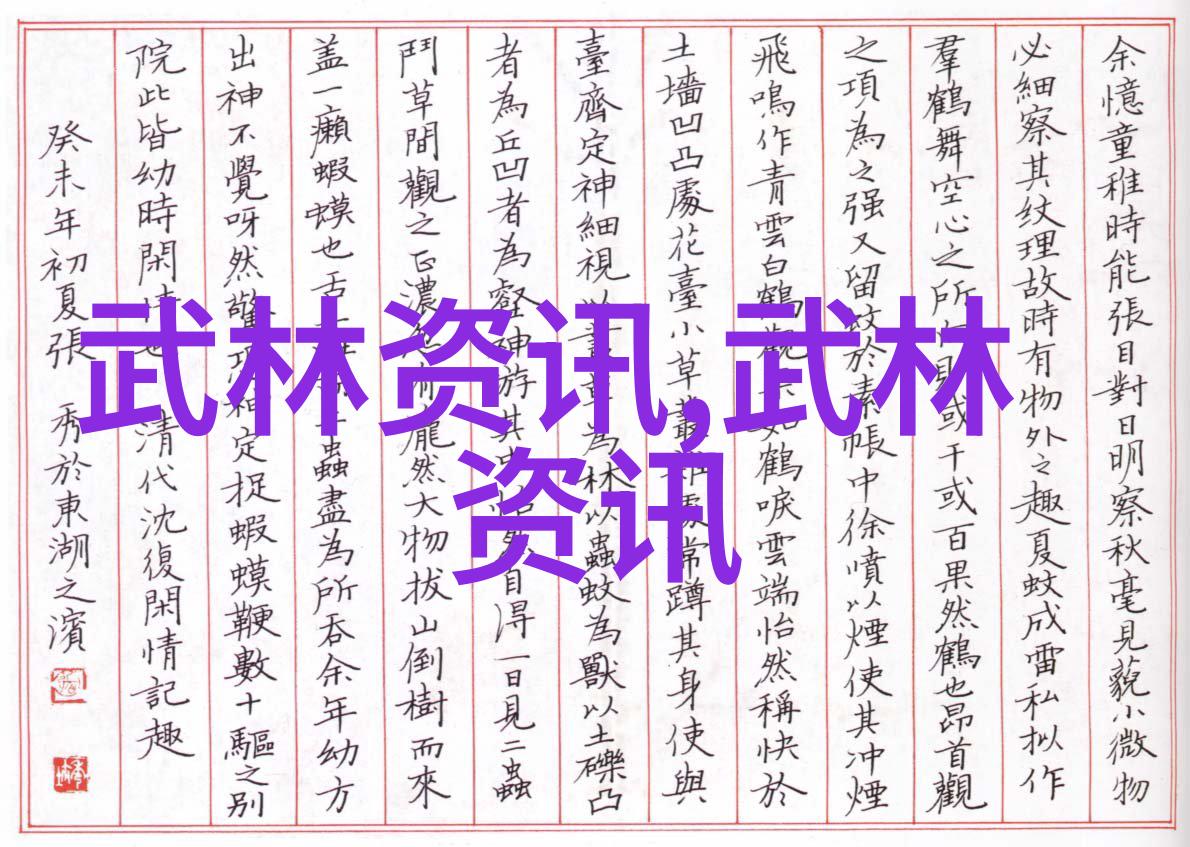 武林资讯,武林
资讯
余憶童稚時能張目對日明察秋毫見藐小微物
必細察其纹理故時有物外之趣夏蚊成雷私拟作
羣鶴舞空心之所或千或百果然鶴也昂首觀
之項為之强又留蚊於素帳中徐噴以煙使其冲煙
飛鳴作青雲白鶴觀如鶴唳雲端怡然稱快於
土墻凹凸處花臺小草叢雜處常蹲其身使與
臺齊定神細視以為林以蟲蚊為獸以土礫凸
者為丘凹者為壑神游其自得一日見二蟲
鬥草間觀之正濃龐然大物拔山倒樹而來
盖一癩蝦蟆也舌二蟲盡為所吞余年幼方
出神不覺呀然驚定捉蝦蟆鞭數十驅之别
院此皆幼時閑情也 清代沈復閑情記趣
癸未年初夏張 秀於東湖之濱